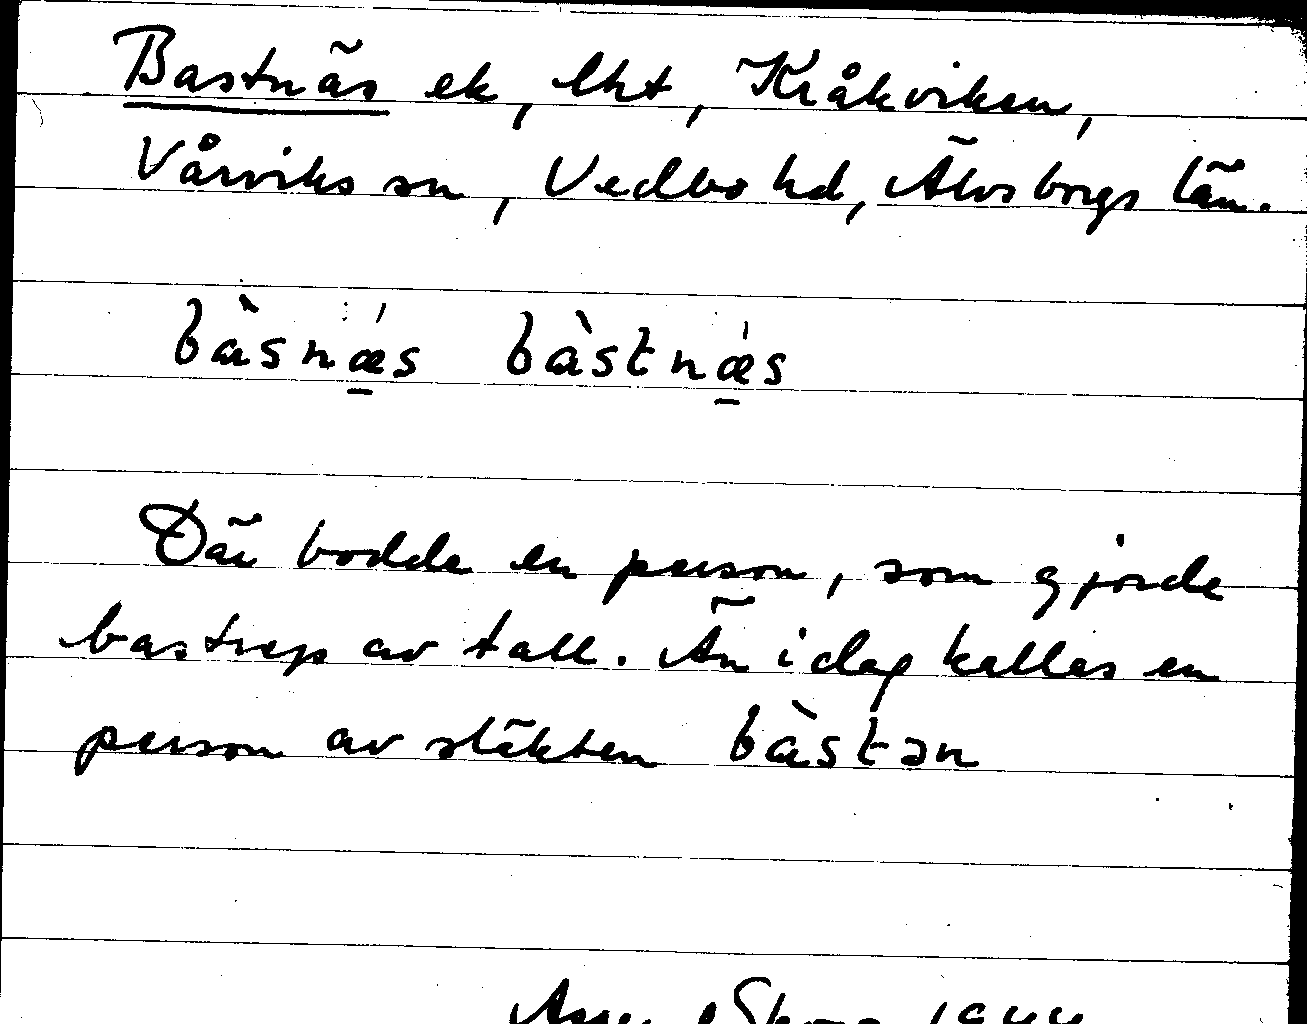 Bastnäs ek, lht, Kråkviken,
Vårviks sn, Vedbo hd, Älvsborgs län.
bàsnǽ̱s bàstnǽ̱s
Där bodde en person, som gjorde
bastrep av tall. Än idag kallas en
person av släkten bàstən
1944